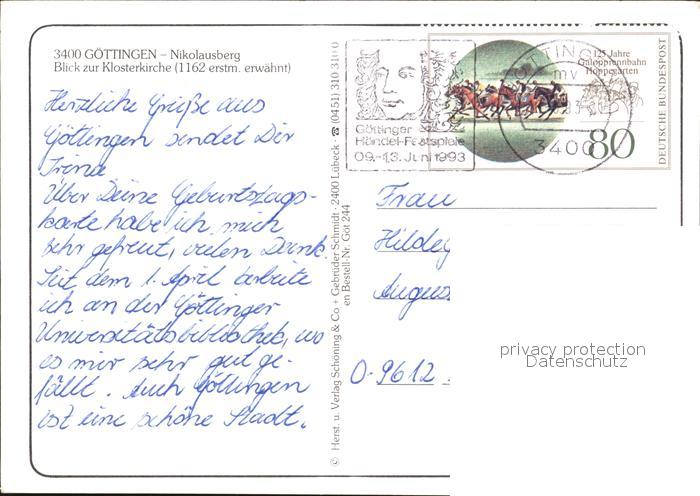 3400 GÖTTINGEN – Nikolausberg
Blick zur Klosterkirche (1162 erstm. erwähnt)
Herzliche Grüße aus
Göttingen sendet Dir
Trina
Über Deine Geburtstags-
karte habe ich mich
sehr gefreut, vielen Dank.
Seit dem 1. April arbeite
ich an der Göttinger
Universitätsbibliothek, wo
es mir sehr gut ge-
fällt. Auch Göttingen
ist eine schöne Stadt.
© Herst. u. Verlag Schöning & Co + Gebrüder Schmidt · 2400 Lübeck · ☎ (0451) 310 310
en Bestell-Nr. Göt 244
Göttinger
Händel-Festspiele
09.-13. Juni 1993
TINGE
mv
3400
125 Jahre
Galopprennbahn
Hoppegarten
80
DEUTSCHE BUNDESPOST
Frau
Hildeg
Augus
O-9612
privacy protection
Datenschutz